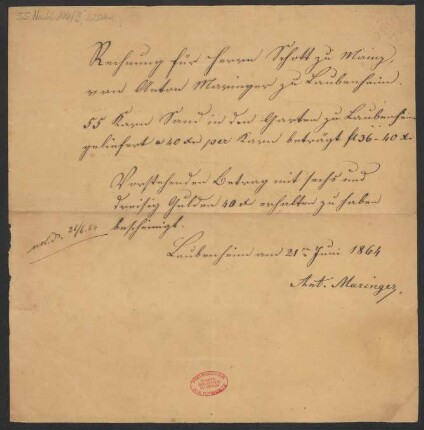 Rechnung für Herrn Schott zu Mainz,
von Anton Maringer zu Laubenheim.
55 Karrn Sand in den Garten zu Laubenheim
geliefert a 40 Xr per Karrn beträgt fl 36-40 Xr
Vorstehenden Betrag mit sechs und
dreisig Gulden 40 Xr erhalten zu haben
bescheinigt.
21/6.64
Laubenheim am 21ten Juni 1864
Ant. Maringer,